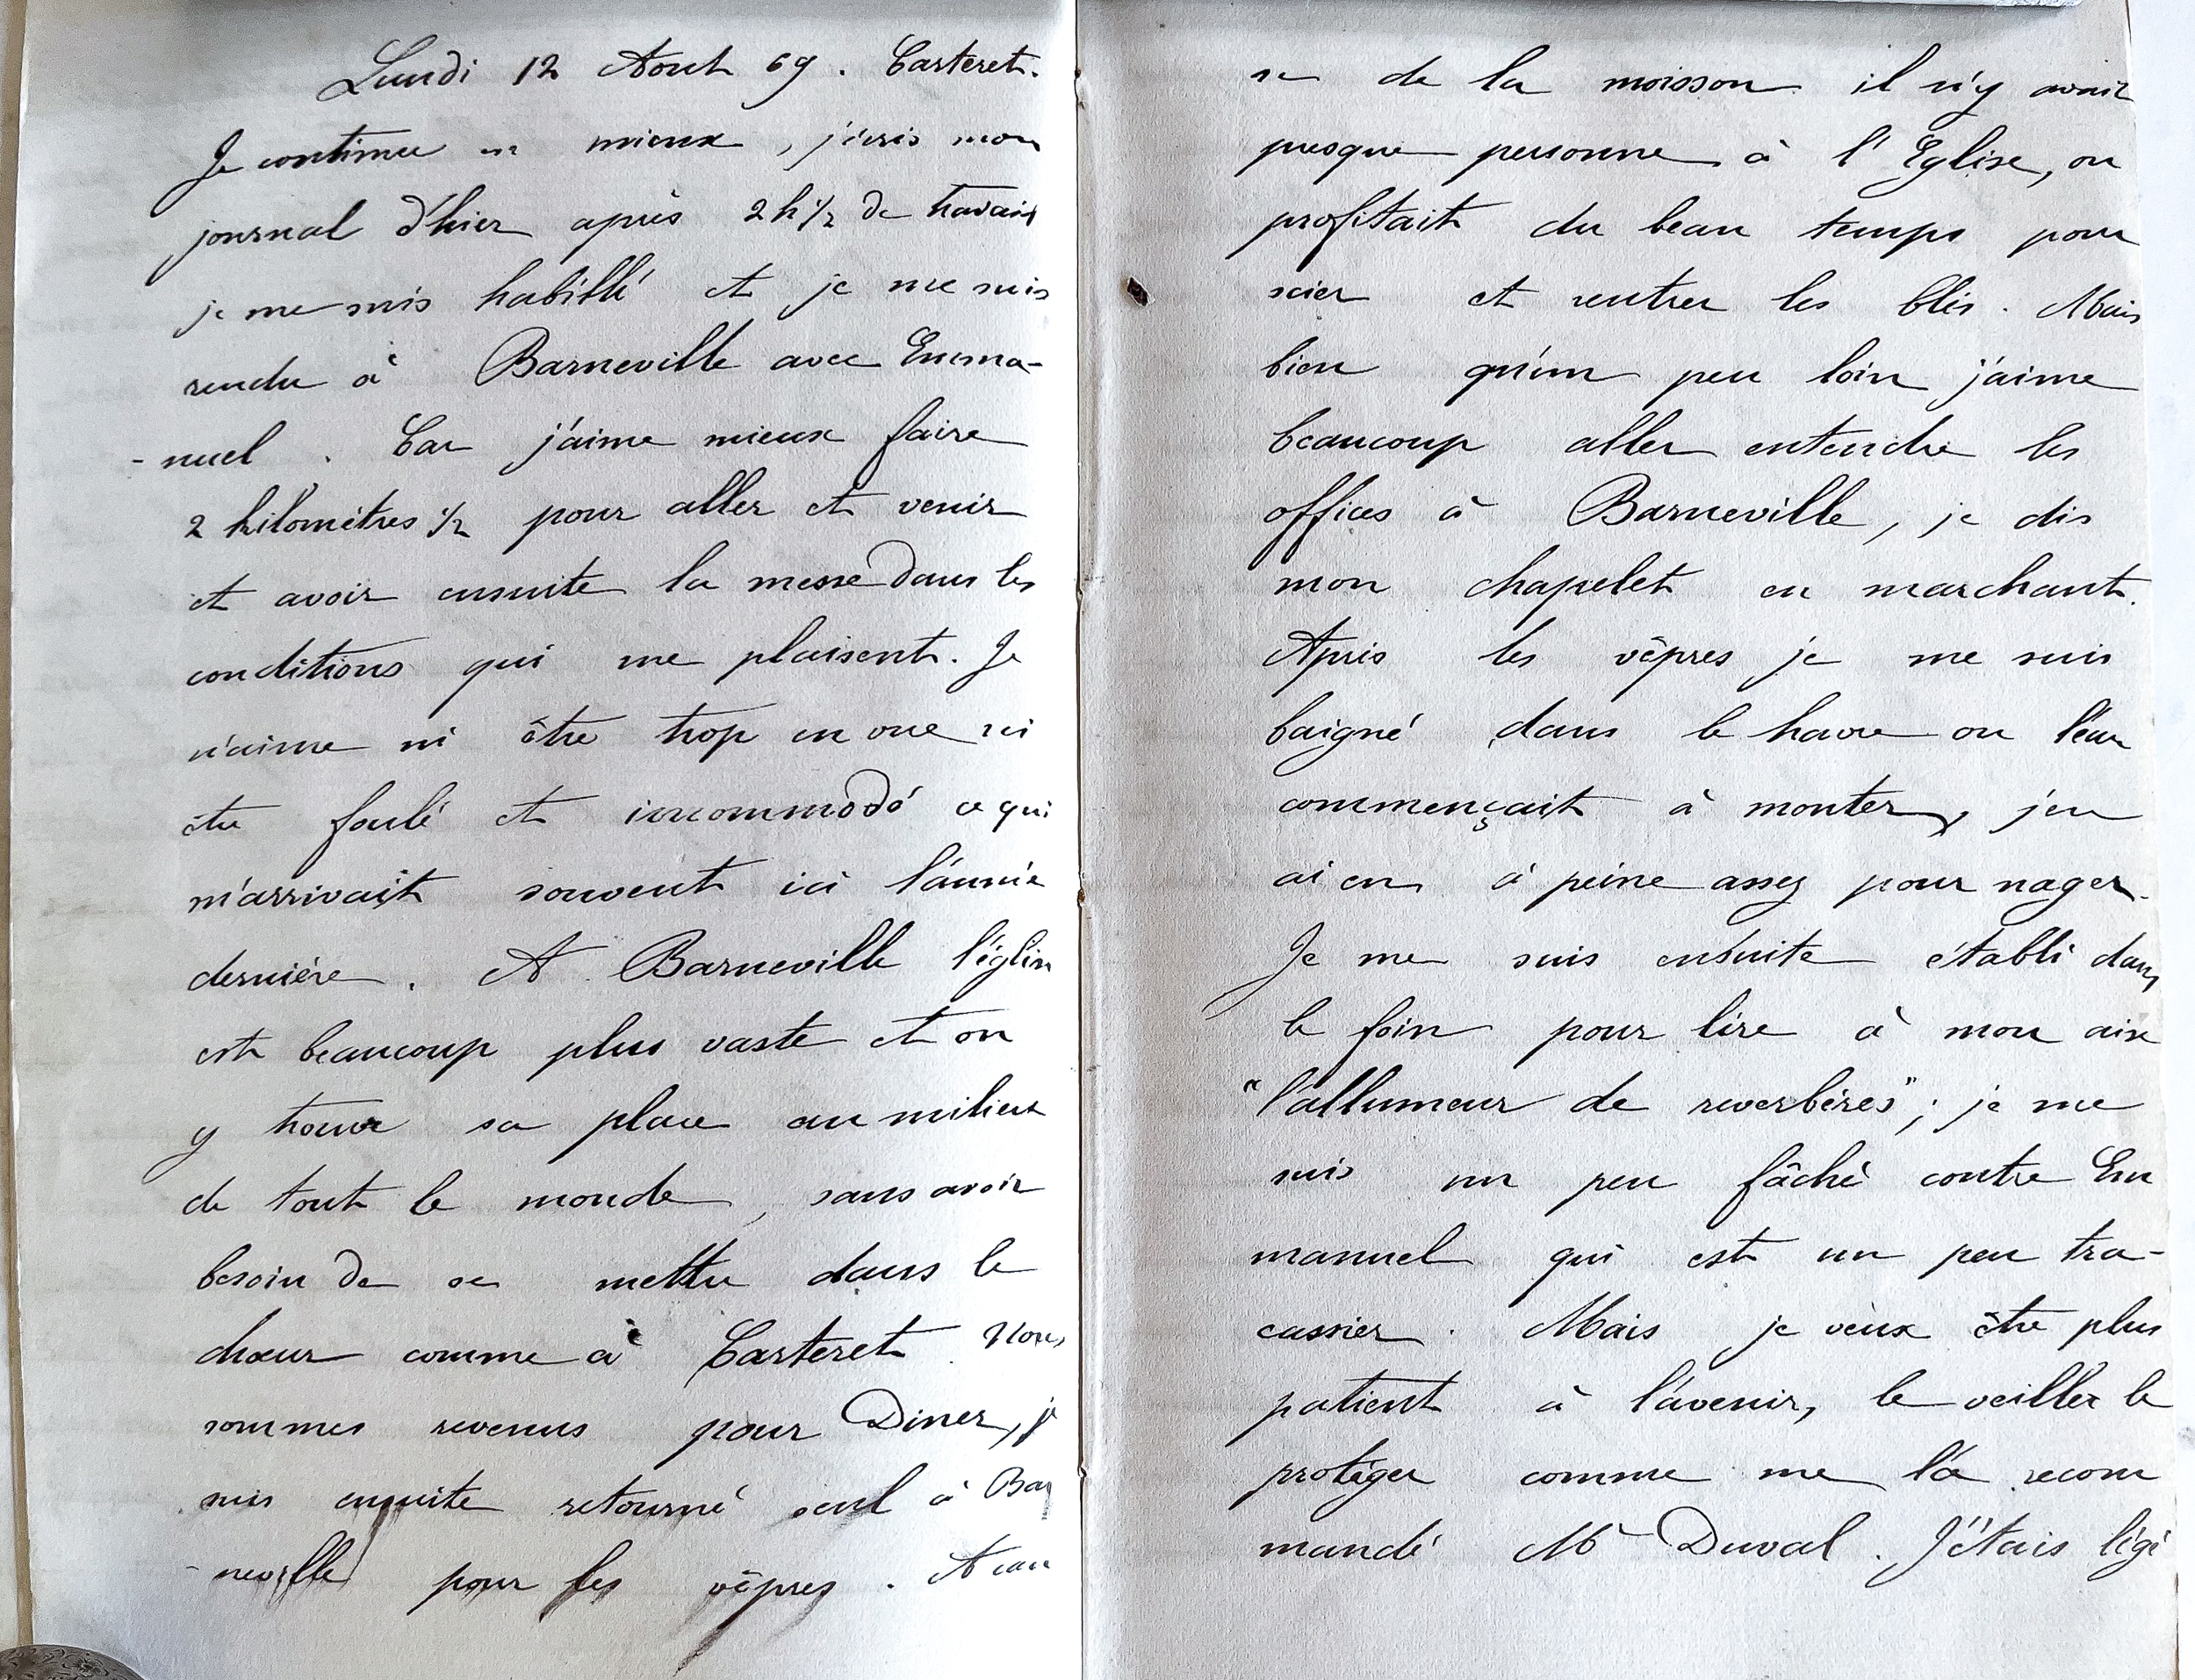 Lundi 12 Aout 69. Carteret.
Je continue en mieux, j'écris mon
journal d'hier après 2h 1/2 de travail
je me suis habillé et je me suis
rendu à Barneville avec Emma-
-nuel. Car j'aime mieux faire
2 kilomètres 1/2 pour aller et venir
et avoir ensuite la messe dans les
conditions qui me plaisent. Je
n'aime ni être trop en vue ni
être foulé et incommodé ce qui
m'arrivait souvent ici l'année
dernière. A Barneville l'église
est beaucoup plus vaste et on
y trouve sa place au milieu
de tout le monde, sans avoir
besoin de se mettre dans le
chœur comme à Carteret. Nous
sommes revenus pour Diner, je
suis ensuite retourné seul à Bar
-neville pour les vêpres. A cau
se de la moisson il n'y avait
presque personne à l'Eglise, on
profitait du beau temps pour
scier et rentrer les blés. Mais
bien qu'un peu loin j'aime
beaucoup aller entendre les
offices à Barneville, je dis
mon chapelet en marchant.
Après les vêpres je me suis
baigné dans le havre ou l'eau
commençait à monter, j'en
ai eu à peine assez pour nager.
Je me suis ensuite établi dans
le foin pour lire à mon aise
"l'allumeur de reverbères"; je me
suis un peu fâché contre Em
manuel qui est un peu tra-
cassier. Mais je veux être plus
patient à l'avenir, le veiller le
protéger comme me l'a recom
mandé Mr Duval. J'étais légè